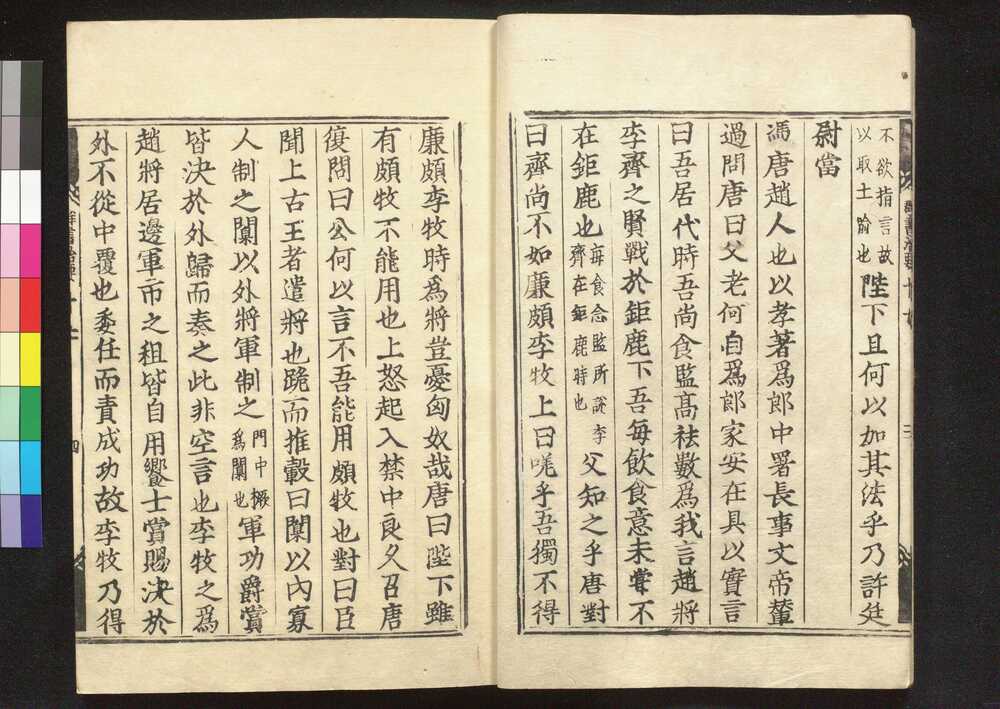 不欲指言故
以取土踰也
陛下且何以加其法乎乃許廷
尉當
馮唐趙人也以孝著爲郎中署長事文帝輦
過問唐曰父老何自爲郎家安在具以實言
曰吾居代時吾尚食監高袪數爲我言趙將
李齊之賢戰於鉅鹿下吾每飲食意未甞不
在鉅鹿也
每食念監所說李
齊在鉅鹿時也
父知之乎唐對
曰齊尚不如廉頗李牧上曰嗟乎吾獨不得
廉頗李牧時爲將豈憂匈奴哉唐曰陛下雖
有頗牧不能用也上怒起入禁中良久召唐
復問曰公何以言不吾能用頗牧也對曰臣
聞上古王者遣將也跪而推轂曰闑以內寡
人制之闑以外將軍制之
門中橛
爲闑也
軍功爵賞
皆決於外歸而奏之此非空言也李牧之爲
趙將居邊軍市之租皆自用饗士賞賜決於
外不從中覆也委任而責成功故李牧乃得
四